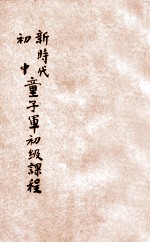 新時代
初中童子軍初级課程